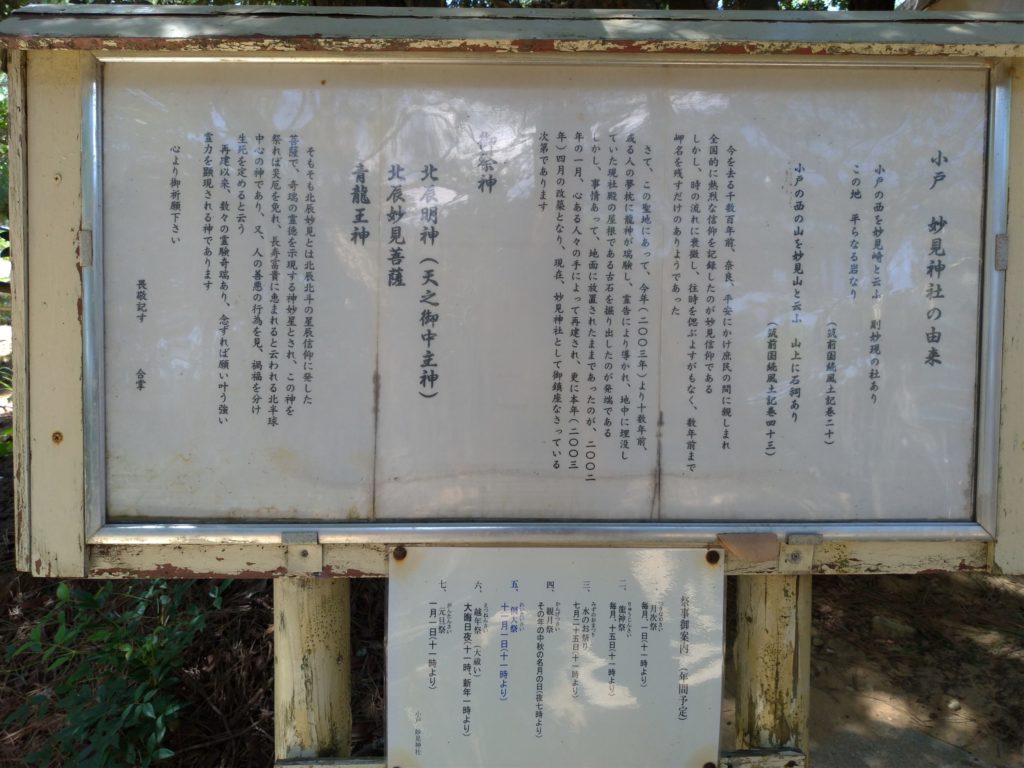 小戸 妙見神社の由来
小戸の西を妙見崎と云ふ 則妙現の社あり
この地 平らなる岩なり
(筑前国続風土記巻二十)
小戸の西の山を妙見山と云ふ 山上に石祠あり
(筑前国続風土記巻四十三)
今を去る千数百年前、奈良、平安にかけ庶民の間に親しまれ
全国的に熱烈な信仰を記録したのが妙見信仰である
しかし、時の流れに衰微し、往時を偲ぶよすがもなく、数年前まで
岬名を残すだけのありようであった
さて、この聖地にあって、今年(二〇〇三年)より十数年前、
或る人の夢枕に龍神が瑞験し、霊告により導かれ、地中に埋没し
ていた現社殿の屋根である古石を掘り出したのが発端である
しかし、事情あって、地面に放置されたままであったのが、二〇〇二
年の一月、心ある人々の手によって再建され、更に本年(二〇〇三
年)四月の改築となり、現在、妙見神社として御鎮座なさっている
次第であります
御祭神
北辰明神(天之御中主神)
北辰妙見菩薩
青龍王神
そもそも北辰妙見とは北辰北斗の星辰信仰に発した
菩薩で、奇瑞の霊徳を示現する神妙星とされ、この神を
祭れば災厄を免れ、長寿富貴に恵まれると云われる北半球
中心の神であり、又、人の善悪の行為を見、禍福を分け
生死を定めると云う
再建以来、数々の霊験奇瑞あり、念ずれば願い叶う強い
霊力を顕現される神であります
心より御祈願下さい
畏敬記す 合掌
祭事御案内 (年間予定)
一、月次祭
毎月、一日(十一時より)
二、龍神祭
毎月、十五日(十一時より)
三、水のお祭り
七月二十五日(十一時より)
四、観月祭
その年の中秋の名月の日(夜七時より)
五、例大祭
十一月一日(十一時より)
六、越年祭(大祓い)
大晦日夜(十一時、新年一時より)
七、元旦祭
一月一日(十一時より)
小戸 妙見神社